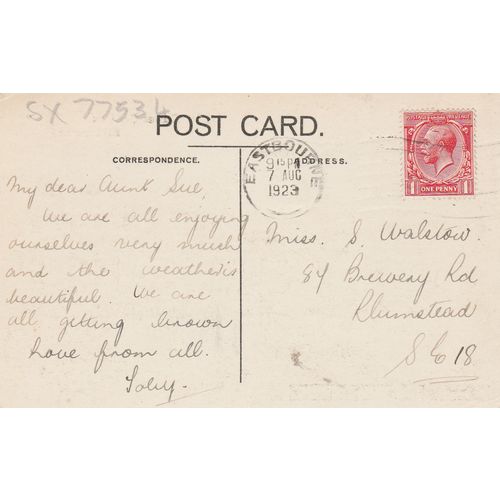 SX 77534
POST CARD.
CORRESPONDENCE.
ADDRESS.
EASTBOURNE
9 15 PM
7 AUG
1923
POSTAGE REVENUE
1 ONE PENNY 1
My dear Aunt Sue,
We are all enjoying
ourselves very much
and the weather is
beautiful. We are
all getting brown
love from all.
Toby.
Miss. S. Walstow.
84 Brewery Rd
Plumstead
S E 18